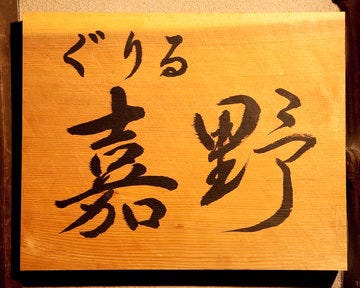 ぐりる
嘉野